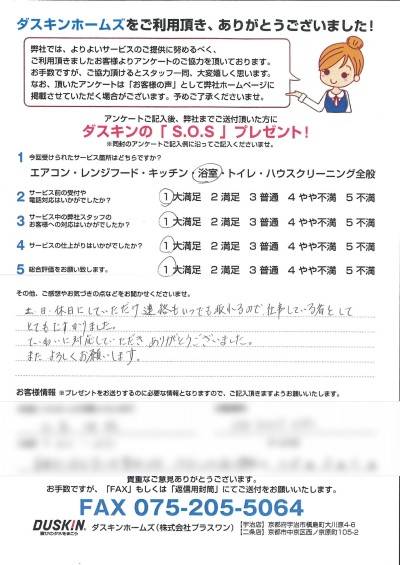 ダスキンホームズをご利用頂き、ありがとうございました!
弊社では、よりよいサービスのご提供に努めるべく、
ご利用頂きましたお客様よりアンケートのご協力を頂いております。
お手数ですが、ご協力頂けるとスタッフ一同、大変嬉しく思います。
なお、頂いたアンケートは「お客様の声」として弊社ホームページに
掲載させていただく場合がございます。予めご了承くださいませ。
アンケートご記入後、弊社までご送付頂いた方に
ダスキンの「S.O.S」プレゼント!
※同封のアンケートご記入例に沿ってご記入くださいませ。
1 今回受けられたサービス箇所はどちらですか?
エアコン・レンジフード・キッチン・浴室・トイレ・ハウスクリーニング全般
2 サービス前の受付や
電話対応はいかがでしたか?
1 大満足 2 満足 3 普通 4 やや不満 5 不満
3 サービス中の弊社スタッフの
お客様への対応はいかがでしたか?
1 大満足 2 満足 3 普通 4 やや不満 5 不満
4 サービスの仕上がりはいかがでしたか?
1 大満足 2 満足 3 普通 4 やや不満 5 不満
5 総合評価をお願い致します。
1 大満足 2 満足 3 普通 4 やや不満 5 不満
その他、ご感想やお気づきの点などをお聞かせくださいませ。
土日・休日にしていただけ連絡もいつでも取れるので、仕事している者として
とてもたすかりました。
ていねいに対応していただきありがとうございました。
またよろしくお願いします。
お客様情報 ※プレゼントをお送りするのに必要な情報となりますので、ご記入頂きますようお願いいたします。
貴重なご意見ありがとうございます。
お手数ですが、「FAX」もしくは「返信用封筒」にてご送付をお願いいたします。
FAX 075-205-5064
DUSKIN
喜びのタネをまこう
ダスキンホームズ(株式会社プラスワン)
【宇治店】京都府宇治市槇島町大川原4-6
【二条店】京都市中京区西ノ京原町105-2